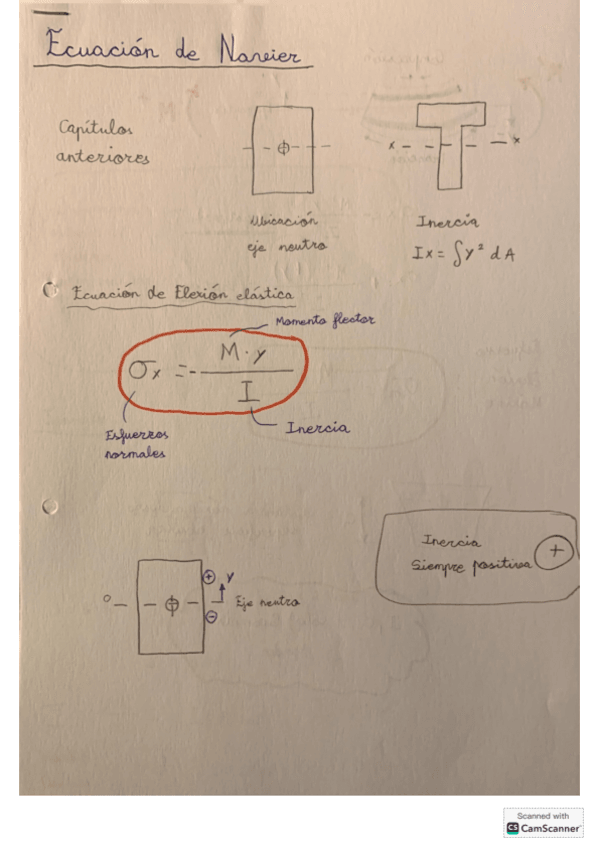 Ecuación de Navier
Capítulos
anteriores
Ubicación
eje neutro
x
x
Inercia
Ix = ∫y² dA
Ecuación de Flexión elástica
Momento flector
σx = - M · y / I
Esfuerzos
normales
Inercia
Inercia
Siempre positiva
+
+
y
0
Eje neutro
-
Scanned with
CS CamScanner